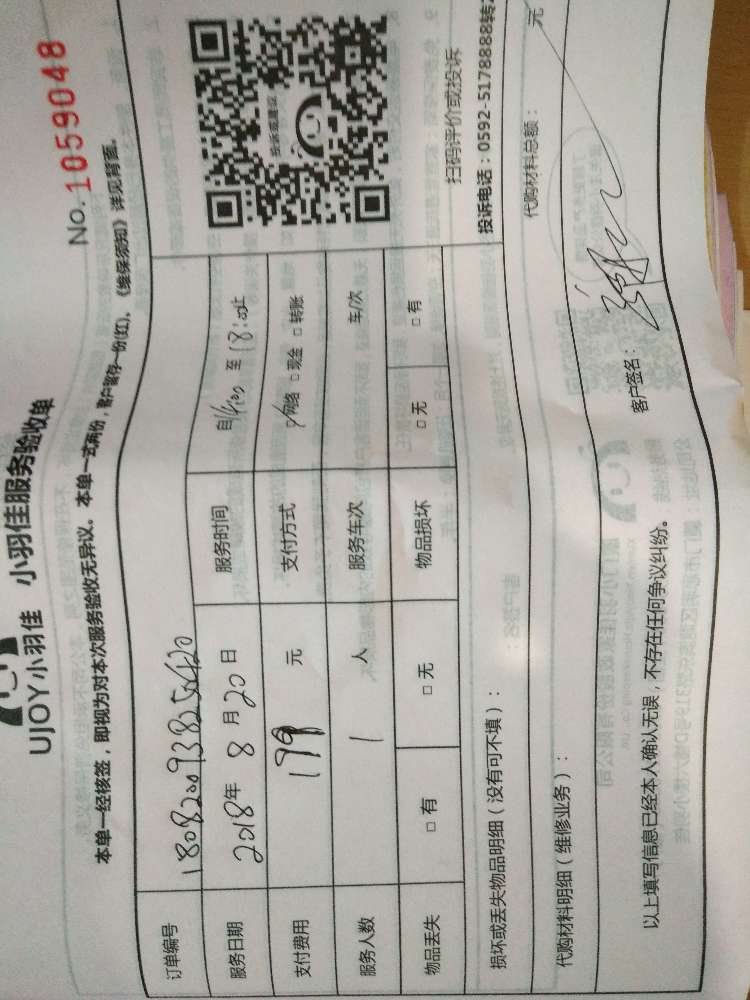 UJOY小羽佳 小羽佳服务验收单
No.1059048
本单一经核签，即视为对本次服务验收无异议。本单一式两份，客户留存一份(红)，《维保须知》详见背面。
订单编号 1808200938256420
服务日期 2018年 8 月 20 日 服务时间 自14:00 至 18:00止
支付费用 199 元 支付方式 网络 □ 现金 □ 转账
服务人数 1 人 服务车次 车/次
物品丢失 □ 有 □ 无 物品损坏 □ 无 □ 有
投诉或建议
扫码评价或投诉
投诉电话：0592-5178888转
损坏或丢失物品明细（没有可不填）：
代购材料明细（维修业务）： 代购材料总额： 元
以上填写信息已经本人确认无误，不存在任何争议纠纷。 客户签名：